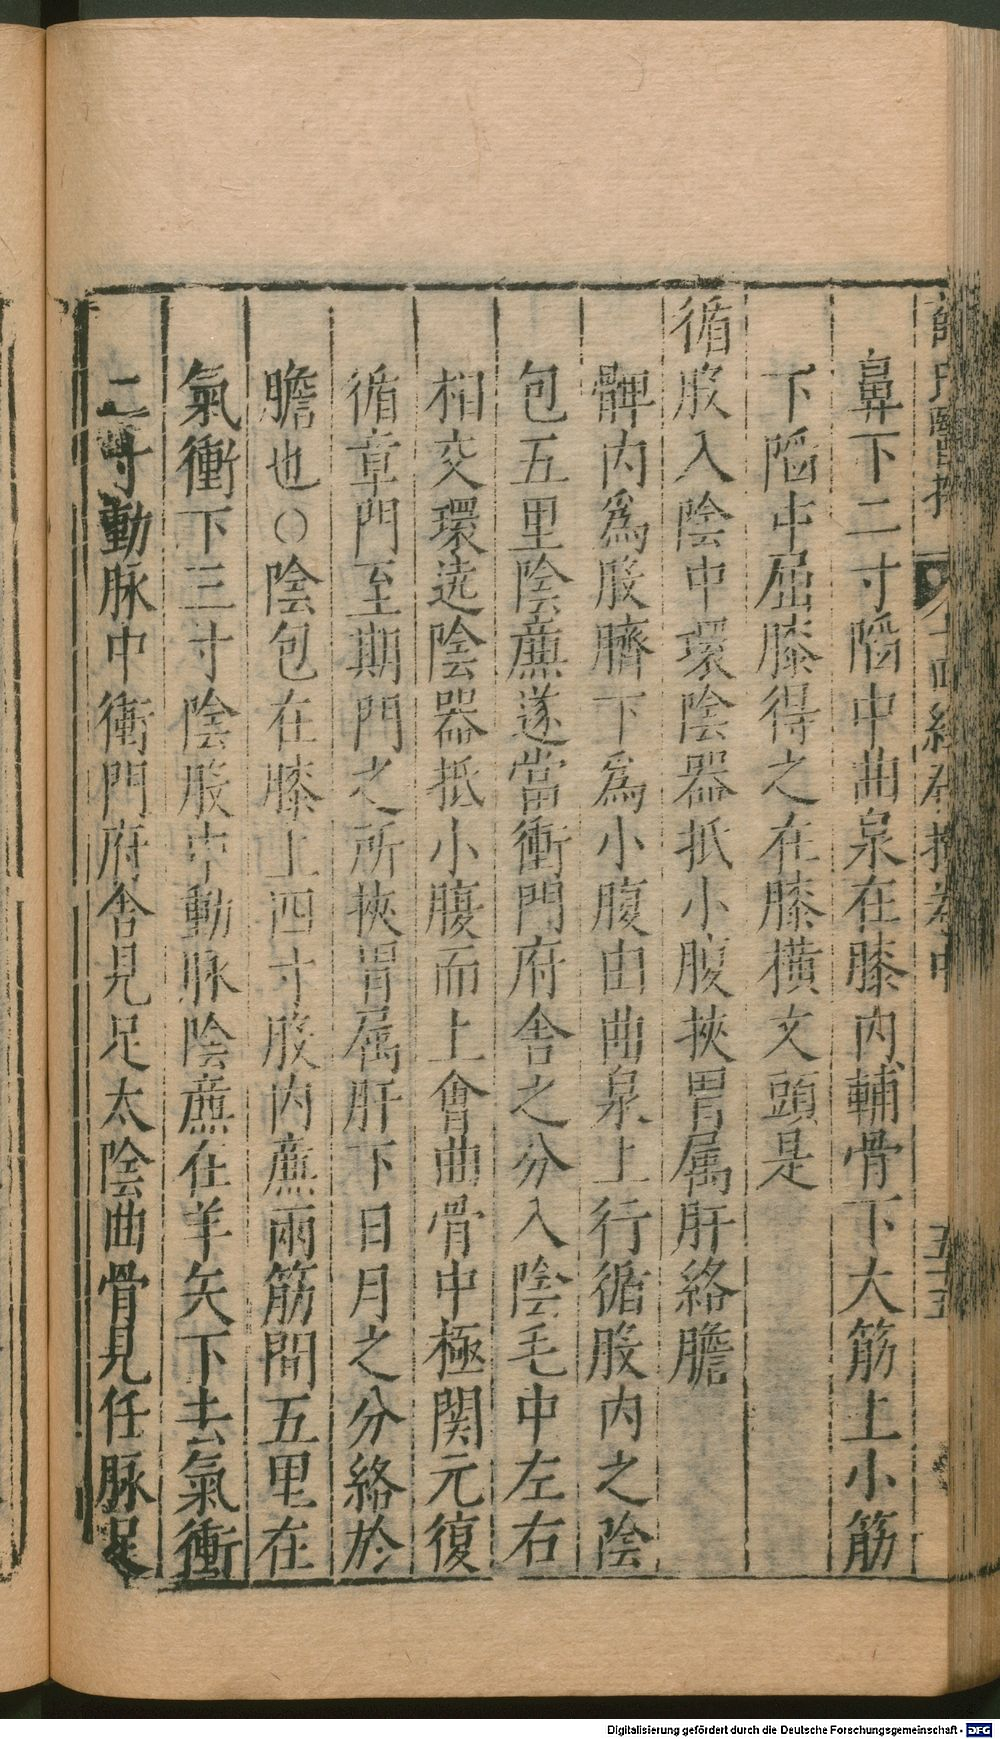 薛氏醫按 十四經發揮卷中 五十五
鼻下二寸陷中曲泉在膝內輔骨下大筋上小筋
下陷中屈膝得之在膝橫文頭是
循股入陰中環陰器抵小腹挾胃属肝絡膽
髀內爲股臍下爲小腹由曲泉上行循股內之陰
包五里陰亷遂當衝門府舍之分入陰毛中左右
相交環遶陰器抵小腹而上會曲骨中極関元復
循章門至期門之所挾胃属肝下日月之分絡於
膽也○陰包在膝上四寸股內亷兩筋間五里在
氣衝下三寸陰股中動脉陰亷在羊矢下去氣衝
二寸動脉中衝門府舍見足太陰曲骨見任脉足
Digitalisierung gefördert durch die Deutsche Forschungsgemeinschaft - DFG